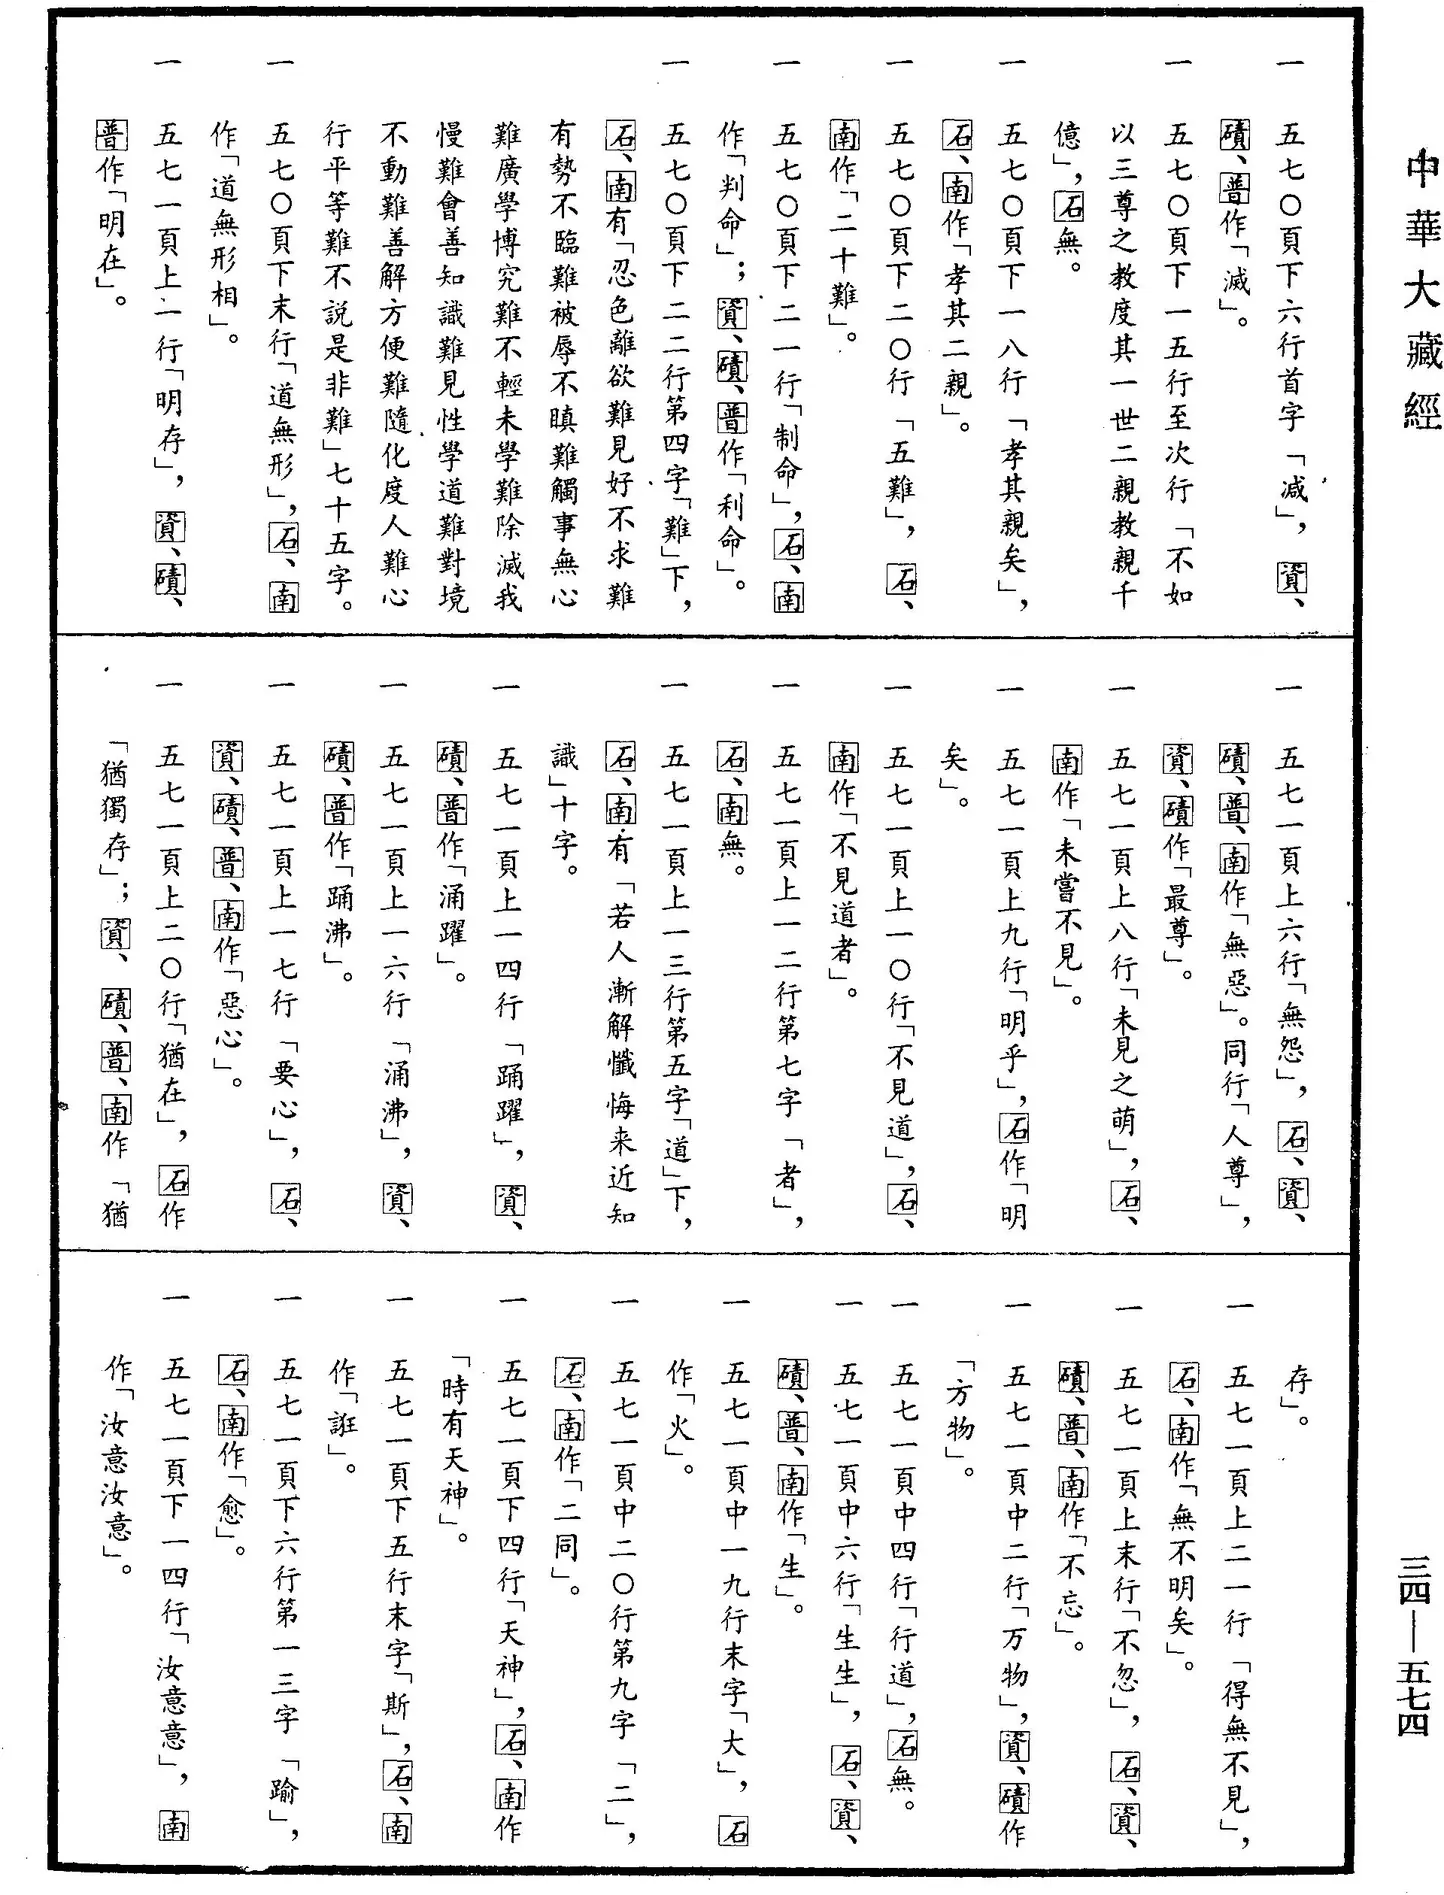 中華大藏經
一　五七〇頁下六行首字「减」，資、
磧、普作「滅」。
一　五七〇頁下一五行至次行「不如
以三尊之教度其一世二親教親千
億」，石無。
一　五七〇頁下一八行「孝其親矣」，
石、南作「孝其二親」。
一　五七〇頁下二〇行「五難」，石、
南作「二十難」。
一　五七〇頁下二一行「制命」，石、南
作「判命」；資、磧、普作「利命」。
一　五七〇頁下二二行第四字「難」下，
石、南有「忍色離欲難見好不求難
有勢不臨難被辱不瞋難觸事無心
難廣學博究難不輕未學難除滅我
慢難會善知識難見性學道難對境
不動難善解方便難隨化度人難心
行平等難不説是非難」七十五字。
一　五七〇頁下末行「道無形」，石、南
作「道無形相」。
一　五七一頁上一行「明存」，資、磧、
普作「明在」。
一　五七一頁上六行「無怨」，石、資、
磧、普、南作「無惡」。同行「人尊」，
資、磧作「最尊」。
一　五七一頁上八行「未見之萌」，石、
南作「未嘗不見」。
一　五七一頁上九行「明乎」，石作「明
矣」。
一　五七一頁上一〇行「不見道」，石、
南作「不見道者」。
一　五七一頁上一二行第七字「者」，
石、南無。
一　五七一頁上一三行第五字「道」下，
石、南有「若人漸解懺悔来近知
識」十字。
一　五七一頁上一四行「踊躍」，資、
磧、普作「涌躍」。
一　五七一頁上一六行「涌沸」，資、
磧、普作「踊沸」。
一　五七一頁上一七行「要心」，石、
資、磧、普、南作「惡心」。
一　五七一頁上二〇行「猶在」，石作
「猶獨存」；資、磧、普、南作「猶
存」。
一　五七一頁上二一行「得無不見」，
石、南作「無不明矣」。
一　五七一頁上末行「不忽」，石、資、
磧、普、南作「不忘」。
一　五七一頁中二行「万物」，資、磧作
「方物」。
一　五七一頁中四行「行道」，石無。
一　五七一頁中六行「生生」，石、資、
磧、普、南作「生」。
一　五七一頁中一九行末字「大」，石
作「火」。
一　五七一頁中二〇行第九字「二」，
石、南作「二同」。
一　五七一頁下四行「天神」，石、南作
「時有天神」。
一　五七一頁下五行末字「斯」，石、南
作「誑」。
一　五七一頁下六行第一三字「踰」，
石、南作「愈」。
一　五七一頁下一四行「汝意意」，南
作「汝意汝意」。
三四—五七四